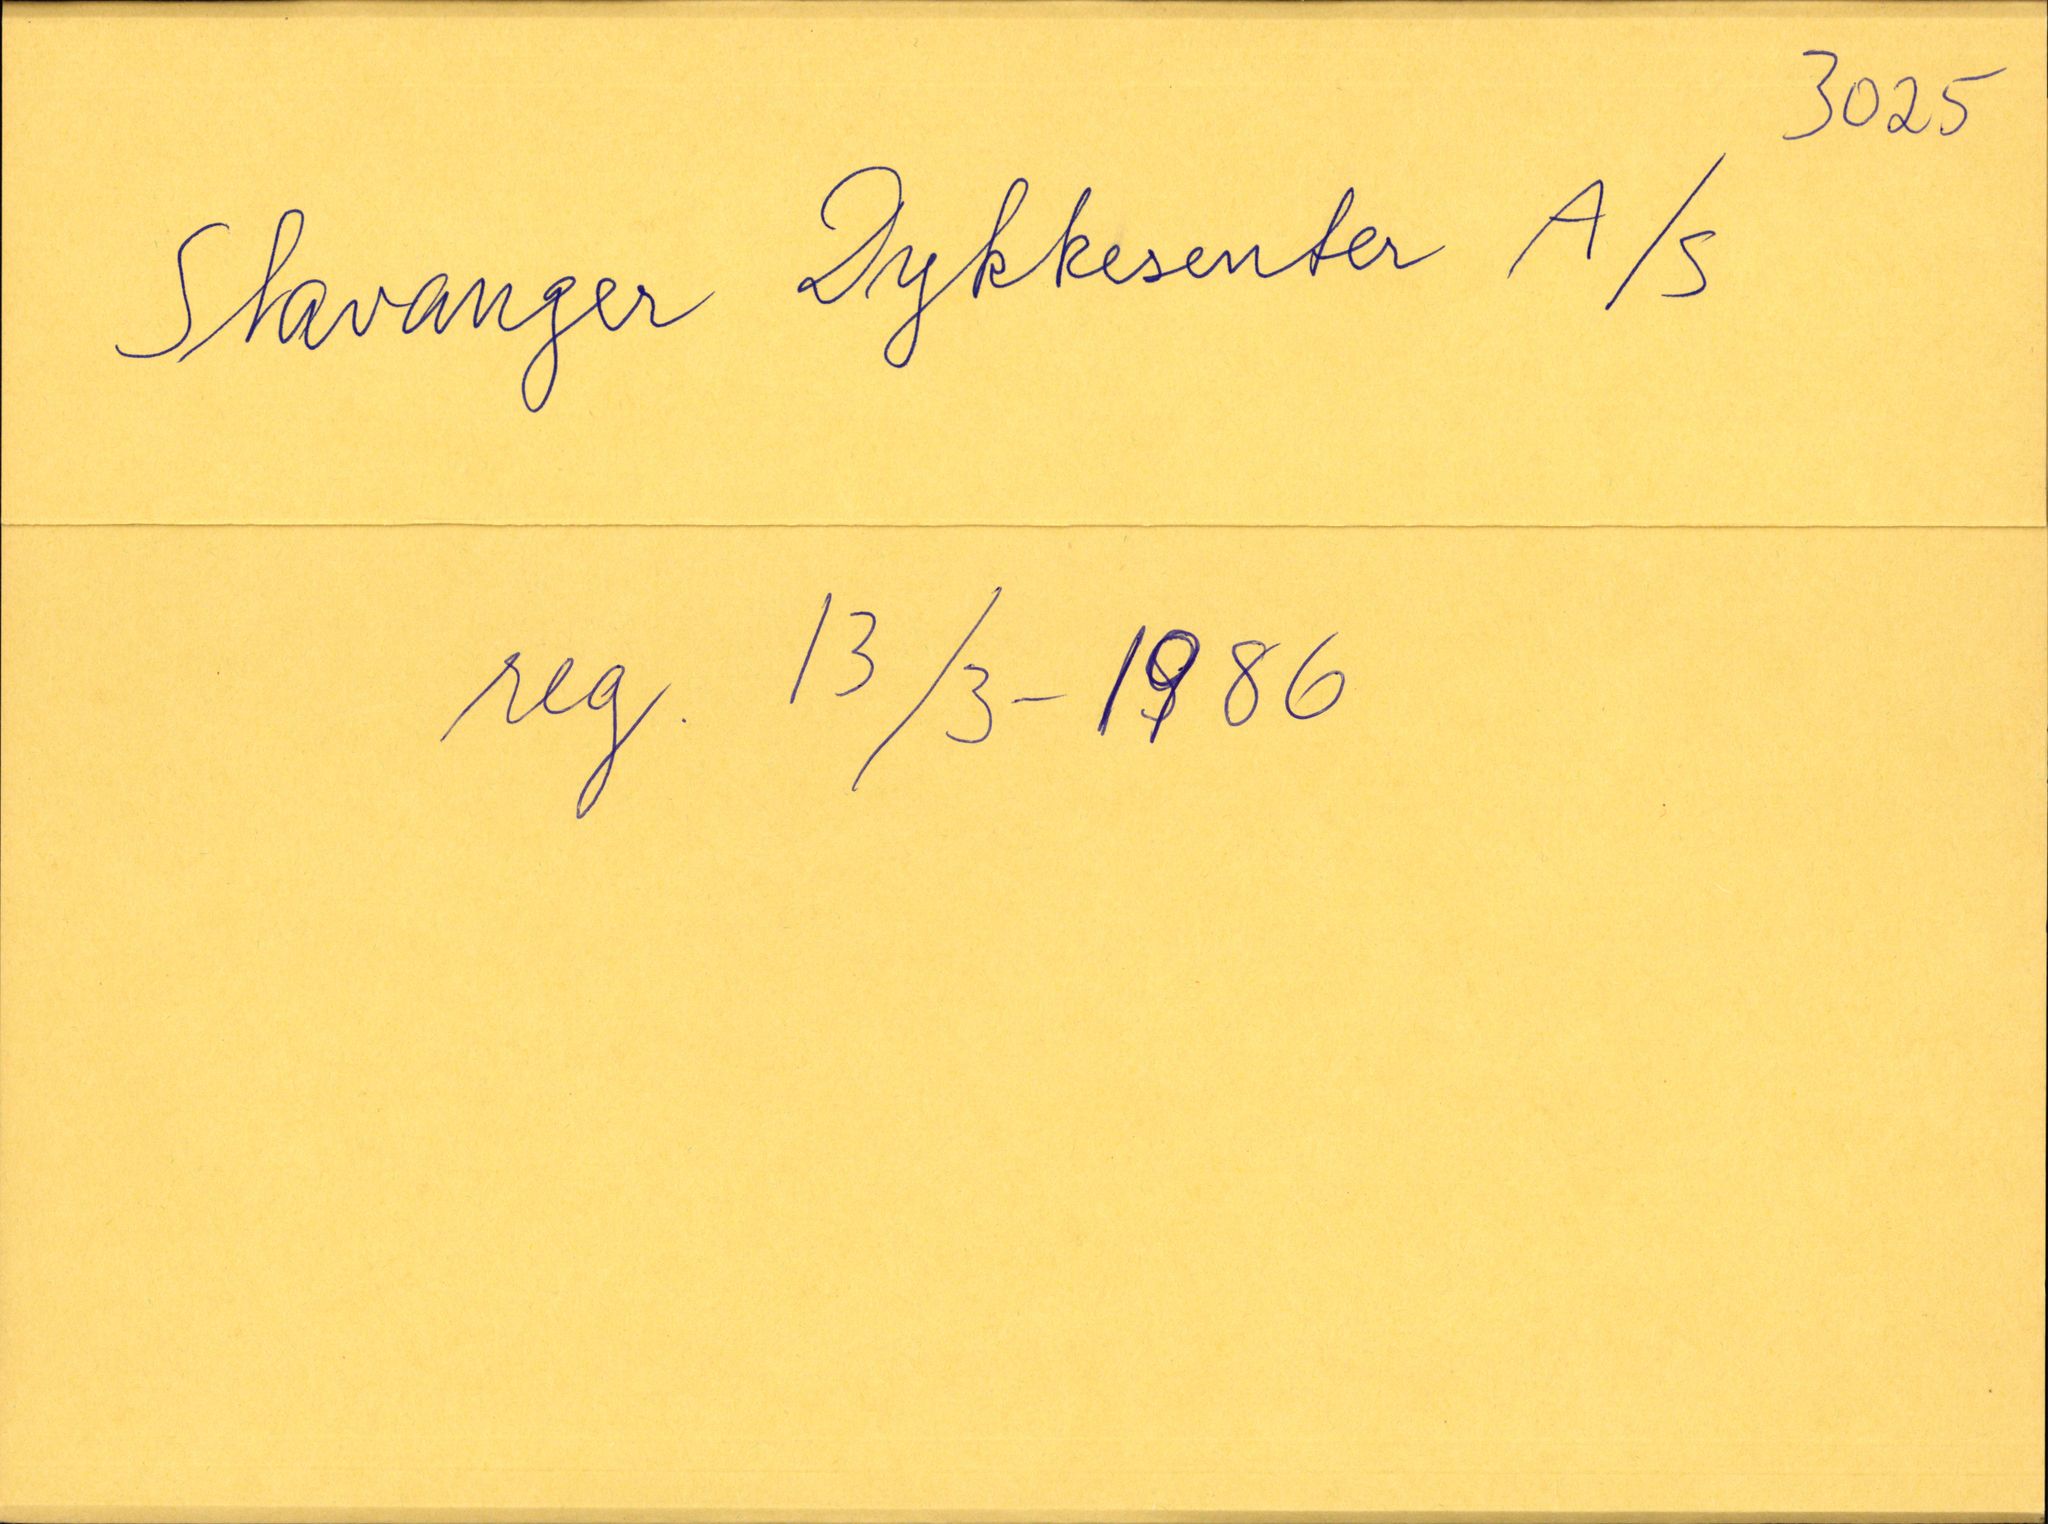 3025
Stavanger Dykkesenter A/S
reg. 13/3-1986